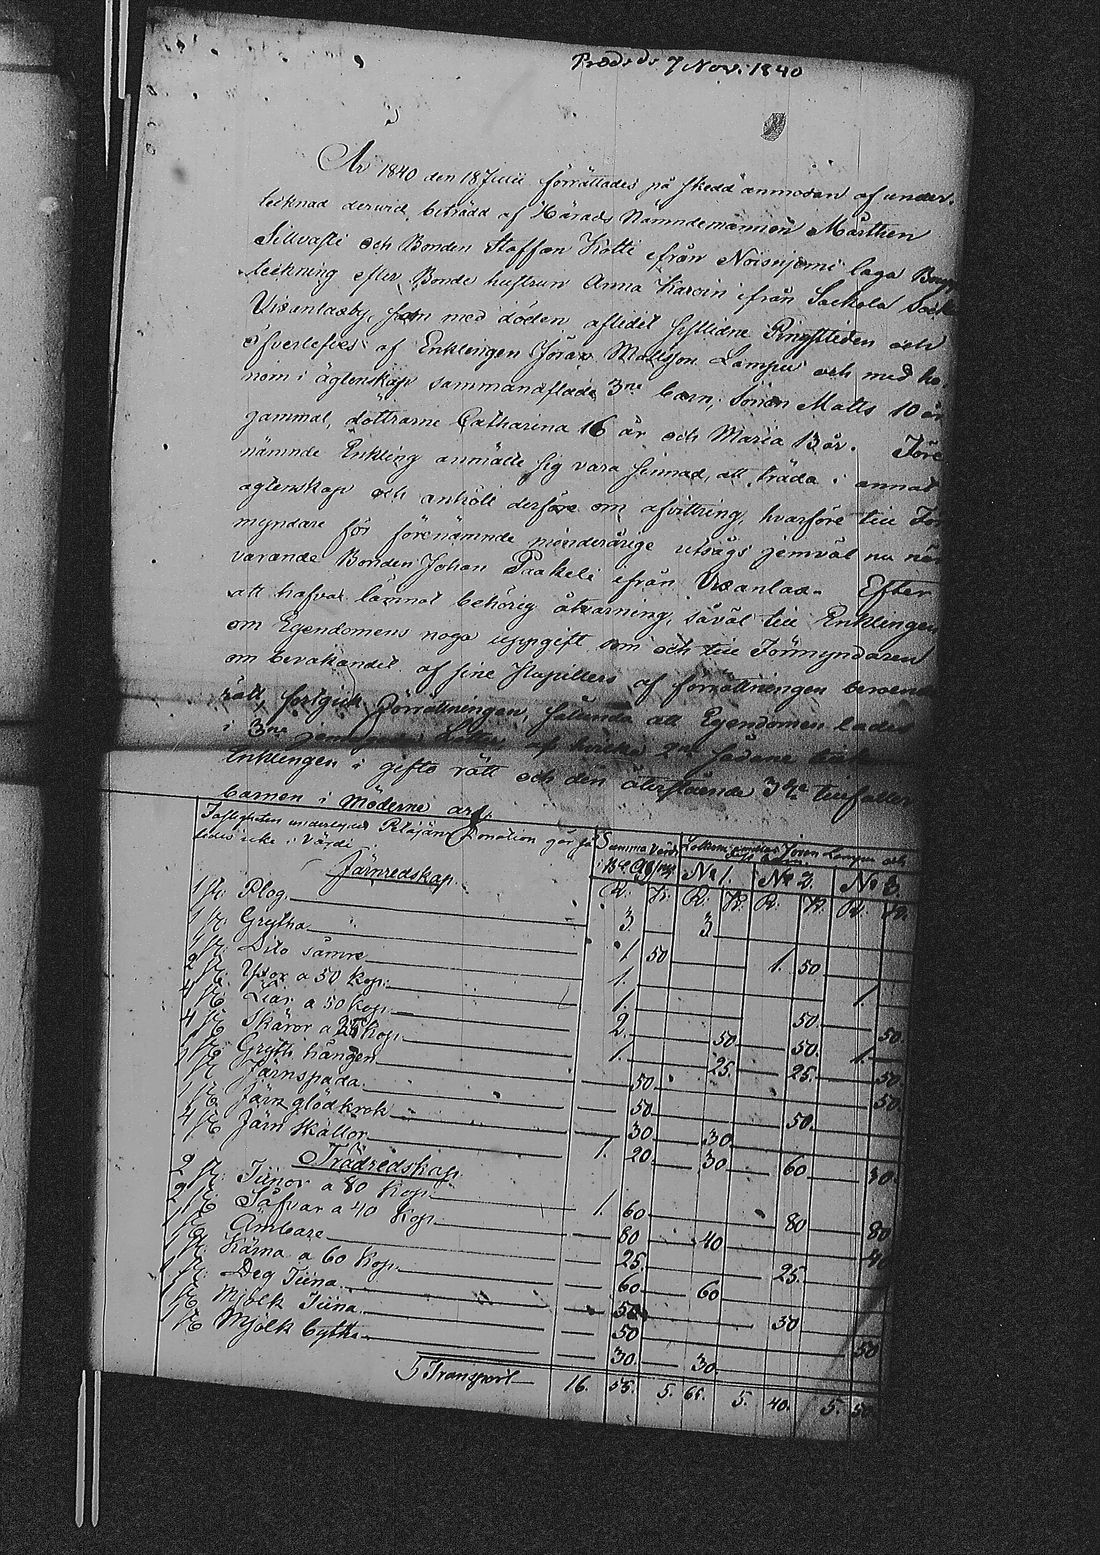 Prod. ds 7 Nov: 1840
År 1840 den 18 Junii förrättades på skedd anmodan af under-
tecknad derwid biträdd af Härads Nämndemannen Mårthen
Sillvasti och Bonden Staffan Kotti ifrån Noisniemi laga Boupp
teckning efter Bonde hustrun Anna Karvin ifrån Sackola Sock
by, som med döden aflidit sistledne och
öfverlefves af Enklingen Jöran Mattsson Lampu och med ho-
nom i äglenskap sammanaflade 3ne barn, Sonen Matts 10 år
gammal, döttrarne Catharina 16 år och Maria 13 år. Före
nämnde Enkling anmälte sig vara sinnad, att träda i annat
äglenskap och anhölt derföre om afvittring, hvarföre till För
myndare för förenämnde minderårige utsågs jemväl nu när
varande Bonden Johan Paakeli ifrån Efter
att hafva lämnat behörig åtvarning, såväl till Enklingen
om Egendomens noga uppgift som och till Förmyndaren
om bevakandet af sine af förrättningen beroende
rätt fortgick förrättningen, sålunda att Egendomen lades
i 3ne Lotter, af hvilka 2ne
Enklingen i gifto rätt och den återstående 3dje tillfaller
barnen i Möderne arf.
Fastigheten underlyder Donation går så
ledes icke i Värde
Summa Värde Lotterne emellan Jöran Lampu och
No 1. No 2. No 3.
R. K. R. K. R. K. R. K.
Järnredskap.
1 st. Plog 3. 3.
1 st. Gryta 1. 50 1. 50.
1 st. Dito sämre 1. 1.
2 st. Yxor a 50 kop. 1. 50. 50.
4 st. Liar a 50 kop. 2. 50. 50. 1.
4 st. Skäror a 25 kop. 1. 25. 25. 50.
1 st. Gryti hängen 50. 50.
1 st. Järnspada 50. 50.
1 st. Järn glödkrok 30. 30.
4 st. Järn skållor 1. 20. 30. 60. 30.
Trädredskap.
2 st. Tiinor a 80 kop. 1. 60. 80. 80.
2 st. Såfvar a 40 kop. 80. 40. 40.
1 st. Ämbare 25. 25.
1 st. Kärna a 60 kop. 60. 60.
1 st. Deg Tiina 50. 50.
1 st. Mjölk Tiina 50 50
1 st. Mjölk bytta 30. 30.
Transport 16. 55. 5. 65. 5. 40. 5. 50.